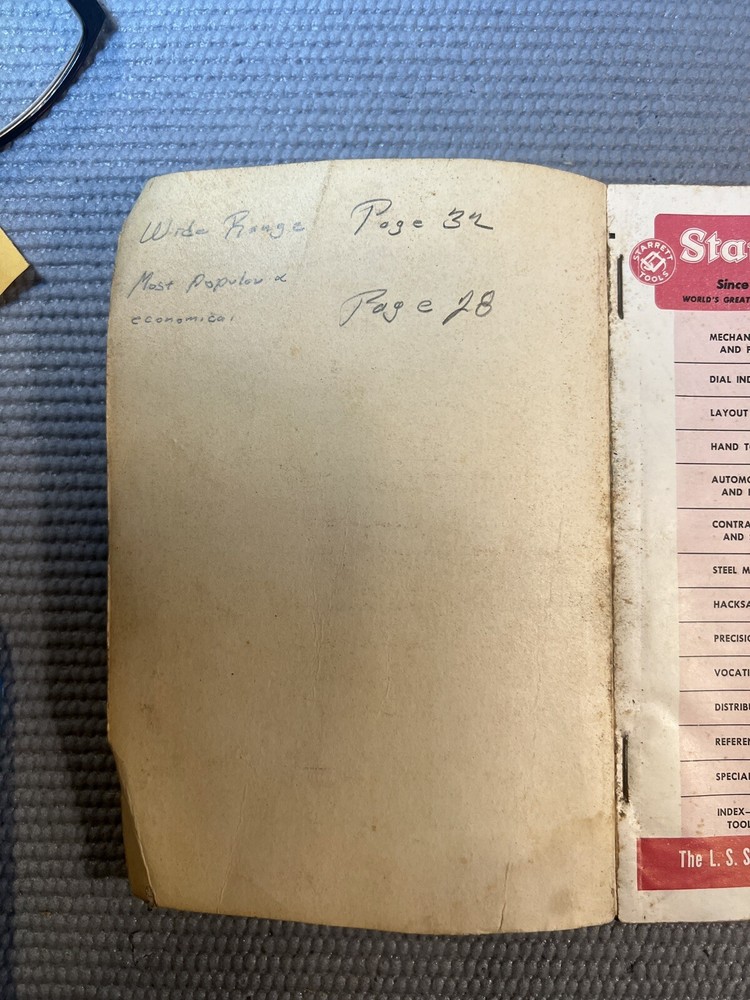 Wide Range Page 32
Most Popular &
economical Page 28
STARRETT
TOOLS
Sta
Since
WORLD'S GREAT
MECHAN
AND F
DIAL IND
LAYOUT
HAND TO
AUTOMO
AND
CONTRA
AND
STEEL M
HACKSA
PRECISIO
VOCATI
DISTRIBU
REFEREN
SPECIAL
INDEX—
TOOL
The L. S. S